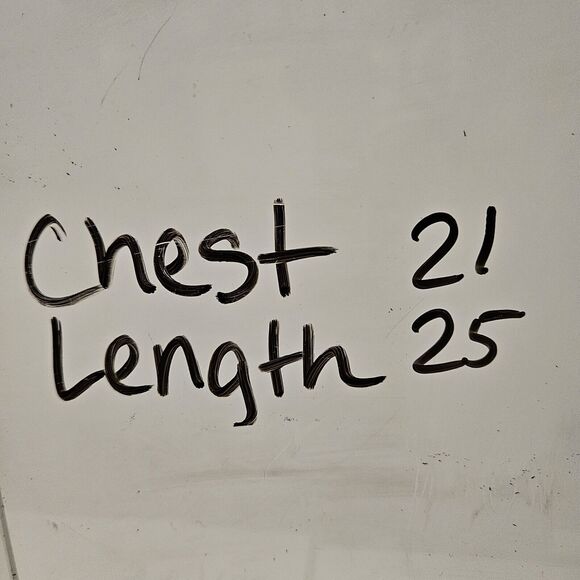 Chest 21
Length 25